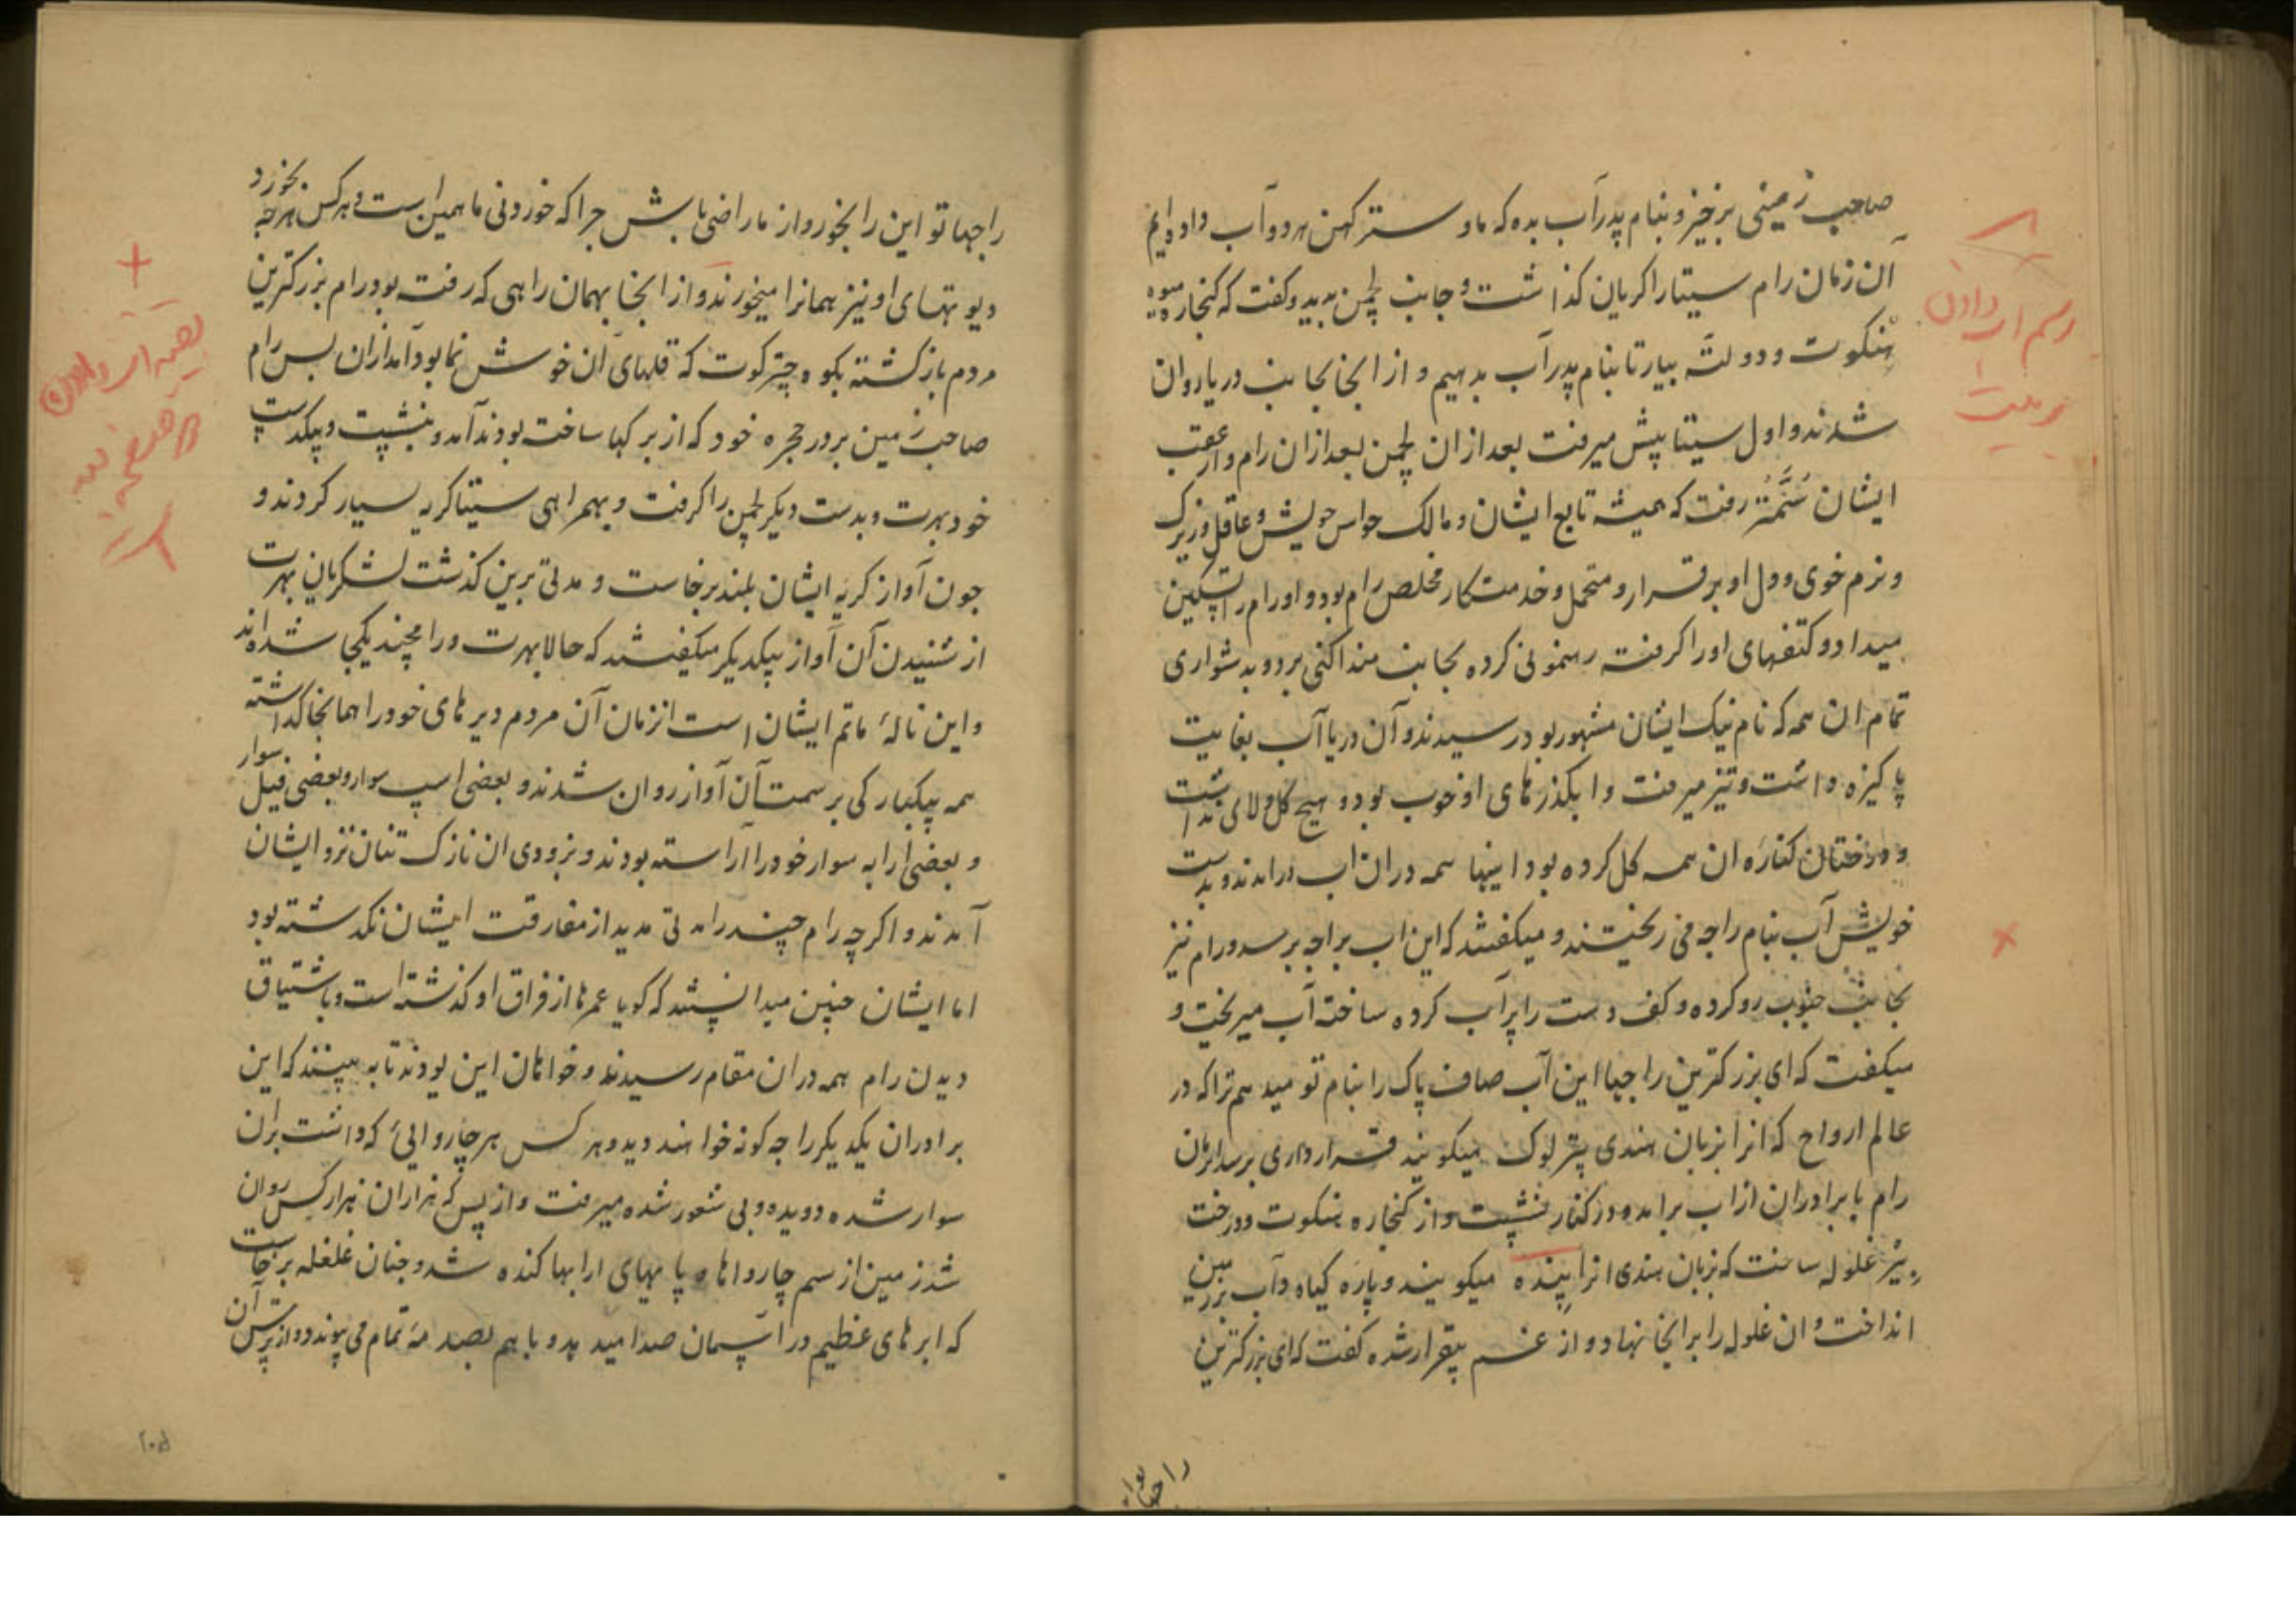 صاحب زمینی برخیز و بنام پدر آب بده که ما و سترکهن هر دو آب داده ایم
آن زمان رام سیتا را کریان کذاشت و جانب لچمن بدید و کفت که کنجاره میوه
هنکوت و دولته بیار تا بنام پدر آب بدهیم و از انجا بجانب دریا روان
شدند و اول سیتا پیش میرفت بعد از ان لچمن بعد از ان رام و از عقب
ایشان سُمَنْتَر رفت که همیشه تابع ایشان و مالک حواس خویش و عاقل و زیرک
و نرم خوی و دل او برقرار و متحمل و خدمتکار مخلص رام بود و او رام را تسکین
میداد و کتفهای او را کرفته رهنمونی کرده بجانب منداکنی برد و بدشواری
تمام ان همه که نام نیک ایشان مشهور بود رسیدند و آن دریا آب بغایت
پاکیزه داشت و تیز میرفت و ابکذرهای او خوب بود و هیچ کل و لای نداشت
و درختان کناره ان همه کل کرده بود اینها همه در ان اب درامدند و بدست
خویش آب بنام راجه می ریختند و میکفتند که این اب براجه برسد و رام نیز
بجانب جنوب رو کرده و کف دست را پر آب کرده ساخته آب میریخت و
میکفت که ای بزرکترین راجها این آب صاف پاک را بنام تو میدهم ترا که در
عالم ارواح که انرا بزبان هندی پترلوک میکویند قرار داری برسد ان زمان
رام با برادران از اب برامده در کنار نشست و از کنجاره هنکوت و درخت
بیر غلوله ساخت که بزبان هندی انرا پنده میکویند و پاره کیاه و آب بر زمین
انداخت و ان غلوله را بر انجا نهاد و از غم بیقرار شده کفت که ای بزرکترین
راجها تو این را بخور و از ما راضی باش چرا که خوردنی ما همین است و هر کس هر چه بخورد
دیوتهای او نیز همانرا میخورند و از انجا بهمان راهی که رفته بود رام بزرکترین
مردم باز کشته بکوه چترکوت که قلهای ان خوش نما بود آمد از ان پس رام
صاحب زمین بر در حجره خود که از برکها ساخته بودند آمد و بنشست و بیکدست
خود بهرت و بدست دیکر لچمن را کرفت و بهمراهی سیتا کریه بسیار کردند و
چون آواز کریه ایشان بلند برخاست و مدتی برین کذشت لشکریان بهرت
از شنیدن آن آواز بیکدیکر میکفتند که حالا بهرت و رامچند یکجا شده اند
و این نالهٔ ماتم ایشان است انزمان آن مردم دیرهای خود را همانجا کذاشته
همه بیکبارکی بر سمت آن آواز روان شدند و بعضی اسپ سوار و بعضی فیل سوار
و بعضی ارابه سوار خود را آراسته بودند و بزودی ان نازک تنان نزد ایشان
آمدند و اکرچه رام چند را مدتی مدید از مفارقت ایشان نکذشته بود
اما ایشان چنین میدانستند که کویا عمرها از فراق او کذشته است و باشتیاق
دیدن رام همه در ان مقام رسیدند و خواهان این بودند تا به بینند که این
برادران یکدیکر را چه کونه خواهند دید و هر کس هر چاروائی که داشت بران
سوار شده دویده و بی شعور شده میرفت و از بس که هزاران هزار کس روان
شد زمین از سم چارواها و پایهای ارابها کنده شد و چنان غلغله برخاست
که ابرهای عظیم در آسمان صدا میدهد و با هم تمام می پیوندد و از ترس آن
راجها تو
رسم اب دادن
میت
۲۰۵